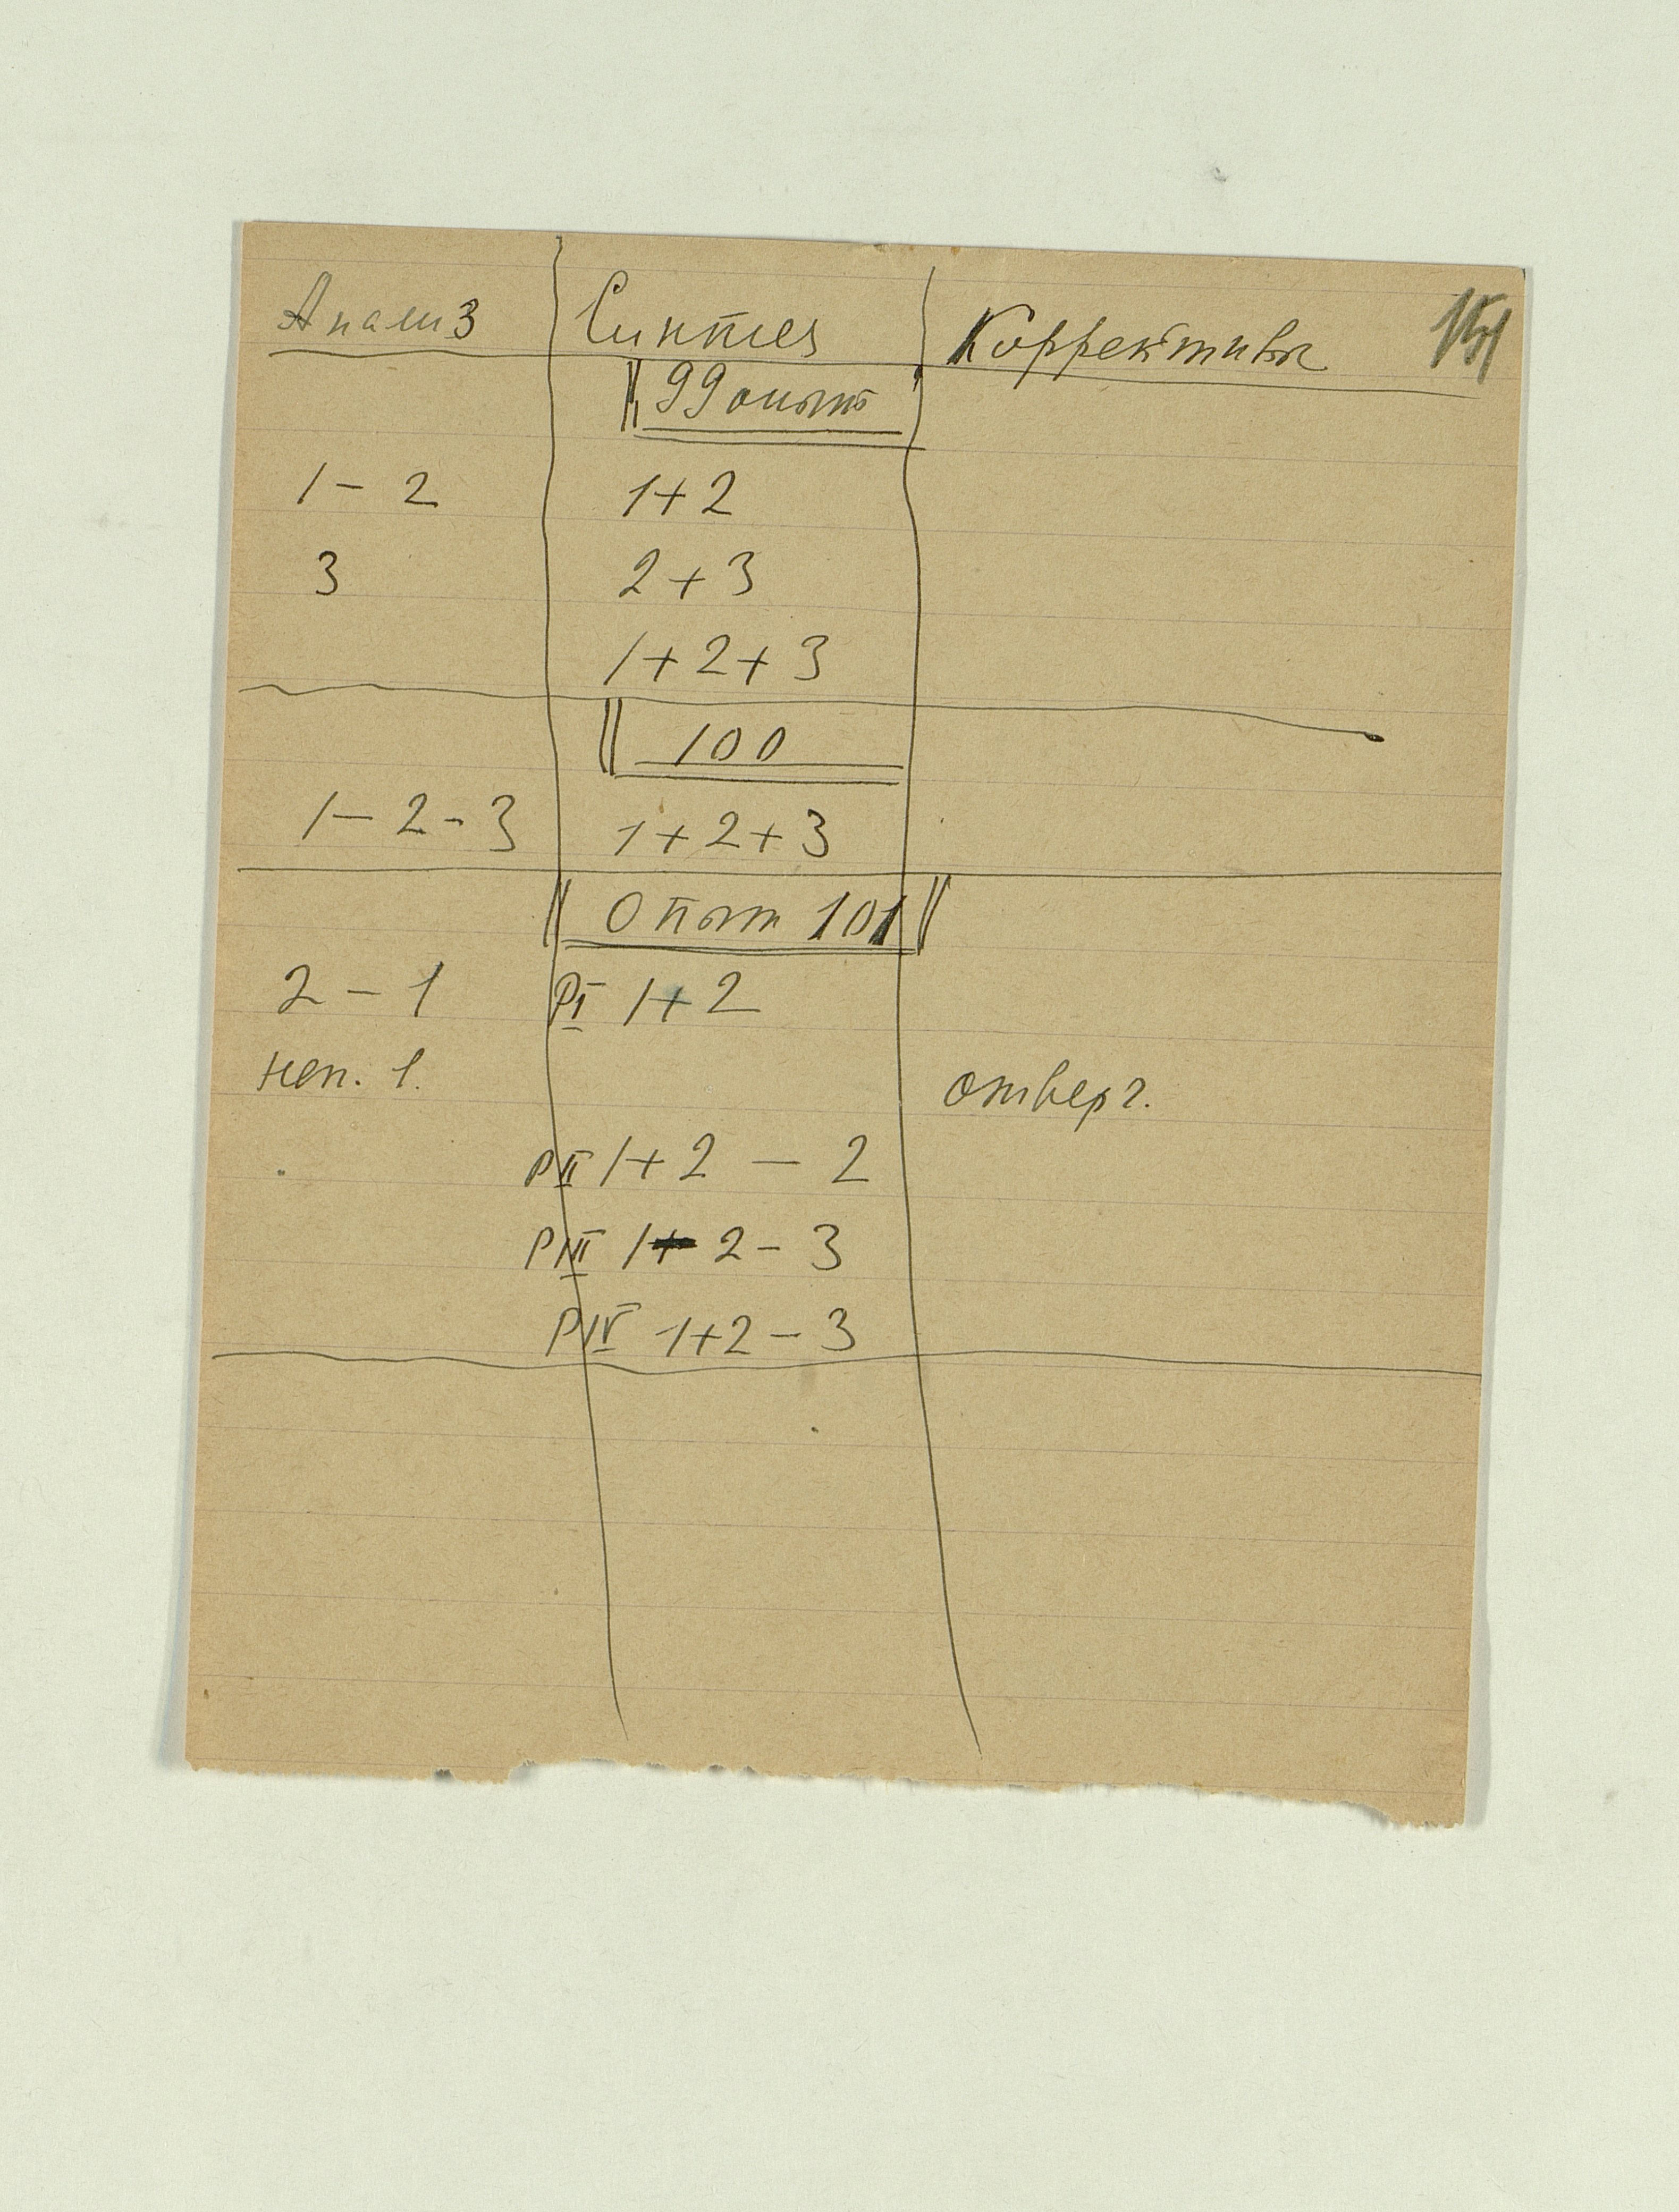 Анализ Синтез Коррективы
99 опыт
1 – 2 1+2
3 2+3
1+2+3
100
1 – 2 - 3 1+2+3
Опыт 101
2 – 1 PI 1+2
неп. 1. отверг.
PII 1+2 – 2
PIII 1 2 – 3
PIV 1+2 – 3